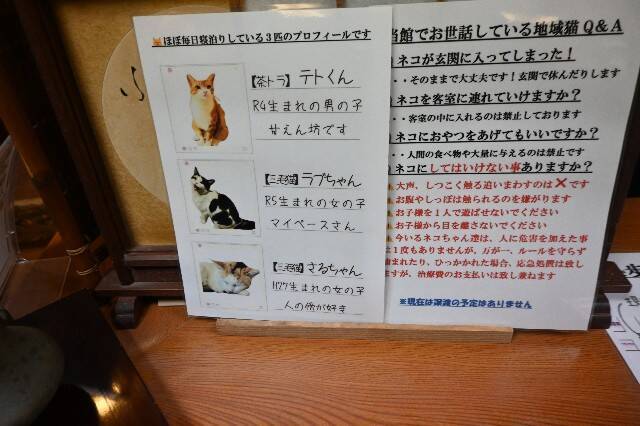 ほぼ毎日寝泊りしている3匹のプロフィールです
【茶トラ】テトくん
R4生まれの男の子
甘えん坊です
【三毛猫】ラブちゃん
R5生まれの女の子
マイペースさん
【三毛猫】さるちゃん
H27生まれの女の子
人の傍が好き
当館でお世話している地域猫Q&A
ネコが玄関に入ってしまった!
・・そのままで大丈夫です!玄関で休んだりします
ネコを客室に連れていけますか?
・・客室の中に入れるのは禁止しております
ネコにおやつをあげてもいいですか?
・・人間の食べ物や大量に与えるのは禁止です
ネコにしてはいけない事ありますか?
大声、しつこく触る追いまわすのは✕です
お腹やしっぽは触られるのを嫌がります
お子様を1人で遊ばせないでください
お子様から目を離さないでください
今いるネコちゃん達は、人に危害を加えた事
は1度もありませんが、万が一、ルールを守らず
噛まれたり、ひっかかれた場合、応急処置は致し
ますが、治療費のお支払いは致し兼ねます
※現在は譲渡の予定はありません